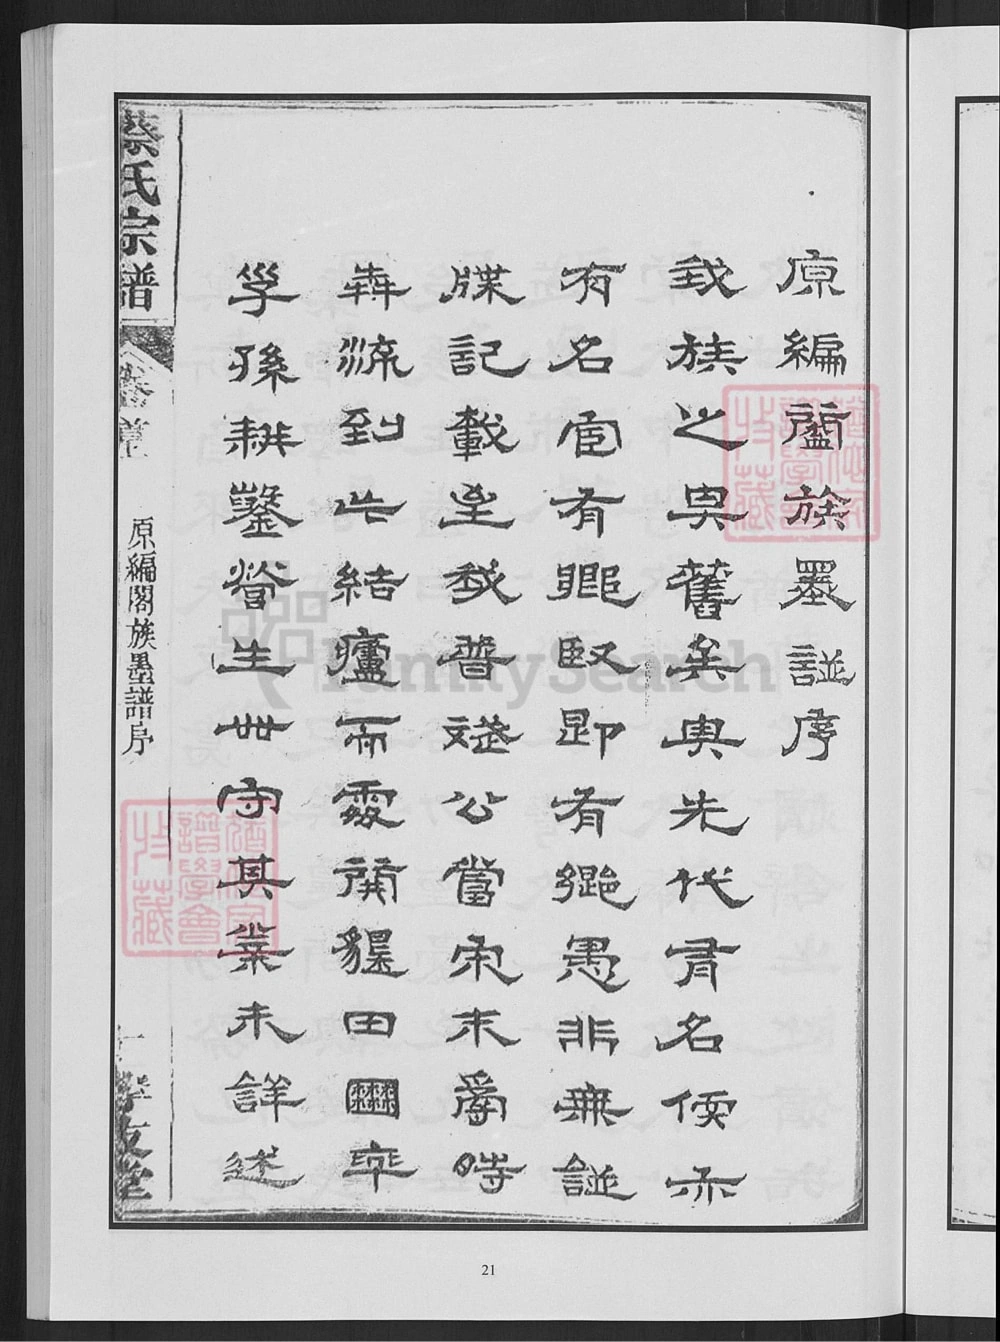 原編闔族墨諩序
我族之興舊矣與先代有名儒亦
有名宦有鄉臤即有鄉愚非無諩
牒記載至我普公當宋末時
犇流到此結廬而處開疆田率
子孫耕鑿營生世守其業未詳述
蔡氏宗譜
卷首
原編閤族墨譜序
一
孝友堂
FamilySearch
21